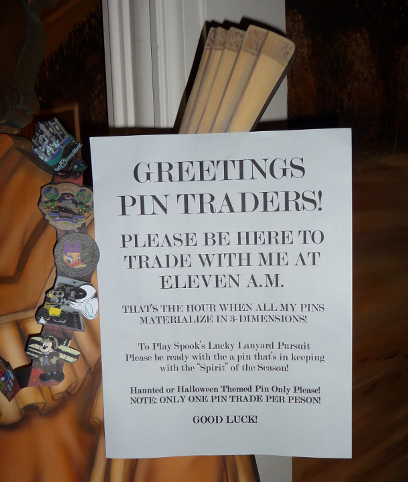 GREETINGS
PIN TRADERS!
PLEASE BE HERE TO
TRADE WITH ME AT
ELEVEN A.M.
THAT'S THE HOUR WHEN ALL MY PINS
MATERIALIZE IN 3-DIMENSIONS!
To Play Spook's Lucky Lanyard Pursuit
Please be ready with the a pin that's in keeping
with the "Spirit" of the Season!
Haunted or Halloween Themed Pin Only Please!
NOTE: ONLY ONE PIN TRADE PER PESON!
GOOD LUCK!